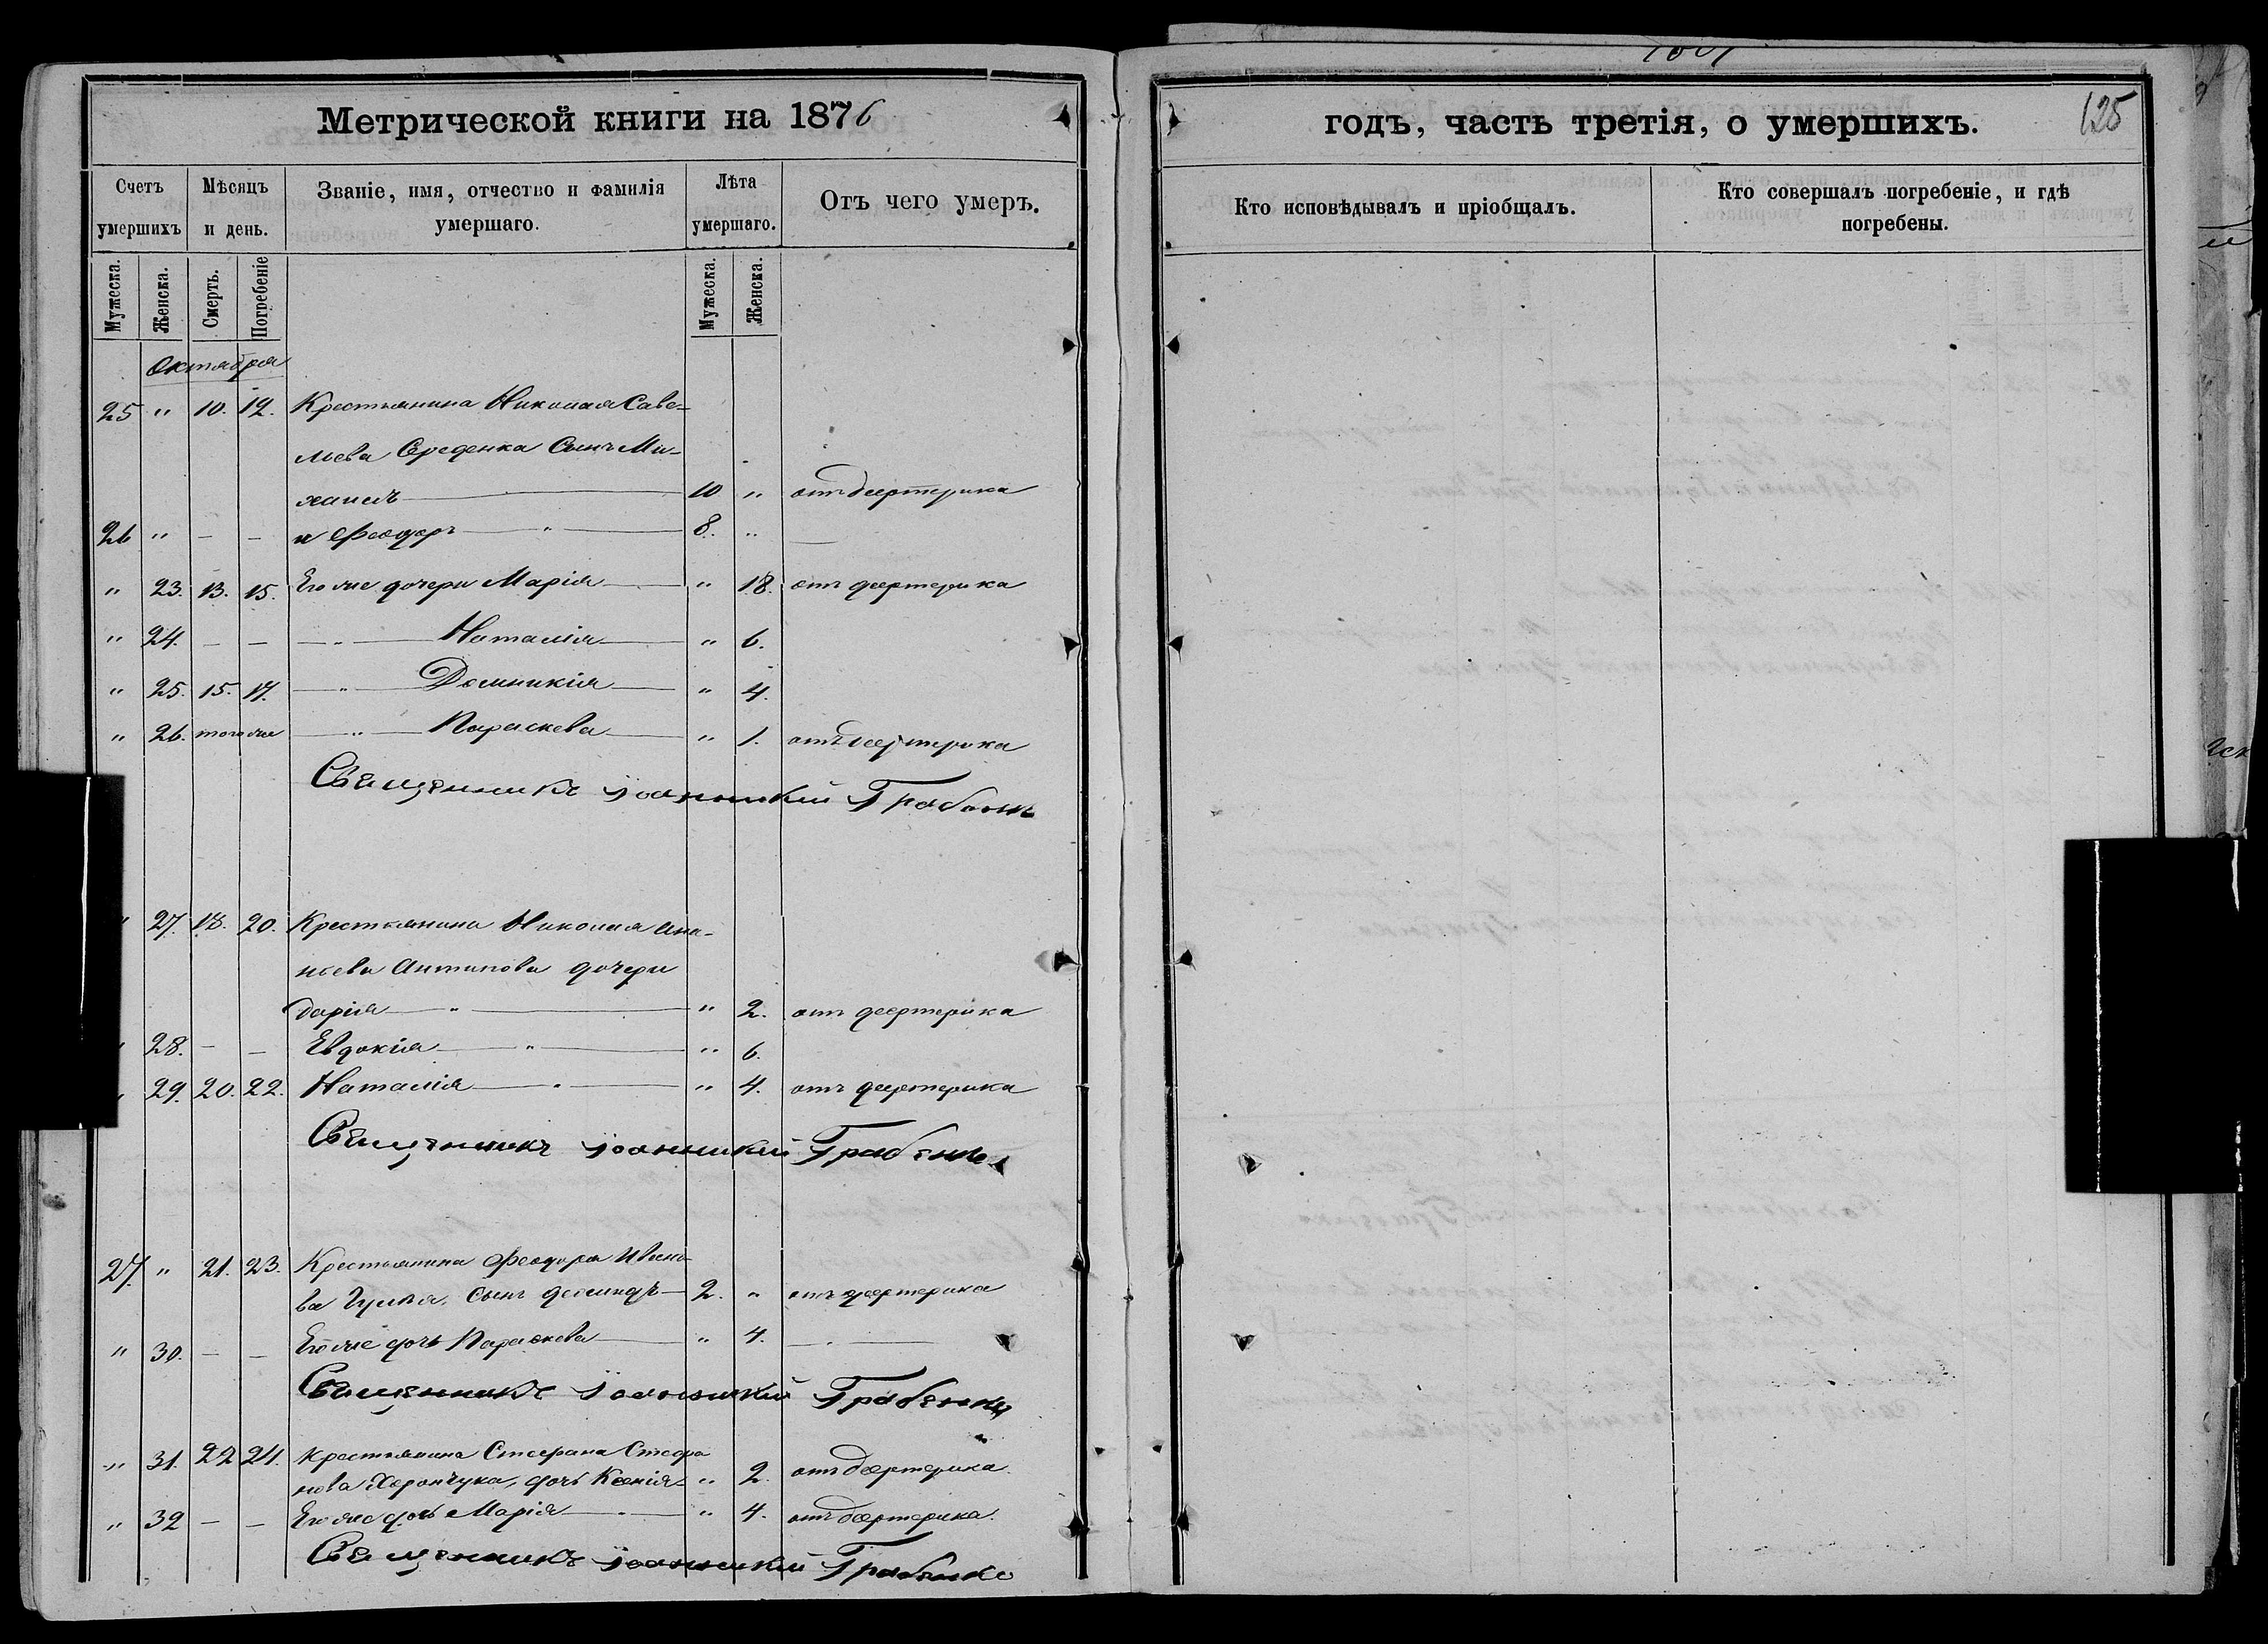 Метрической книги на 1876
Счетъ умершихъ
Мѣсяцъ и день.
Званіе, имя, отчество и фамилія умершаго.
Лѣта умершаго.
Отъ чего умеръ.
Мужеска. Женска. Смерть. Погребеніе Мужеска. Женска.
Октября
25 " 10. 12. Крестьянина Николая Саве-
льева Середенка Сынъ Ми-
хаилъ 10 " отъ дифтерика
26 " — — и Феодоръ " 8. " —
" 23. 13. 15. Его же дочери Марія " 18. отъ дифтерика
" 24. — — " Наталія " 6.
" 25. 15. 17. " Домникія " 4.
" 26. того же " Параскева " 1. отъ дифтерика
Священникъ Іоанникій
" 27. 18. 20. Крестьянина Николая Ана-
ньева Антипова дочери
Дарія " " 2. отъ дифтерика
28. — — Евдокія " " 6.
29. 20. 22. Наталія " " 4. отъ дифтерика
Священникъ Іоанникій
27. " 21. 23. Крестьянина Феодора Ивано-
ва сынъ 2. " отъ дифтерика
" 30. — — Его же дочь Параскева " 4. — " —
Священникъ Іоанникій
" 31. 22 24. Крестьянина Стефана Стефа
нова дочь Ксенія " 2. отъ дифтерика
" 32 — — Его же дочь Марія " 4. отъ дифтерика.
Священникъ Іоанникій
годъ, часть третія, о умершихъ.
125
Кто исповѣдывалъ и пріобщалъ.
Кто совершалъ погребеніе, и гдѣ погребены.